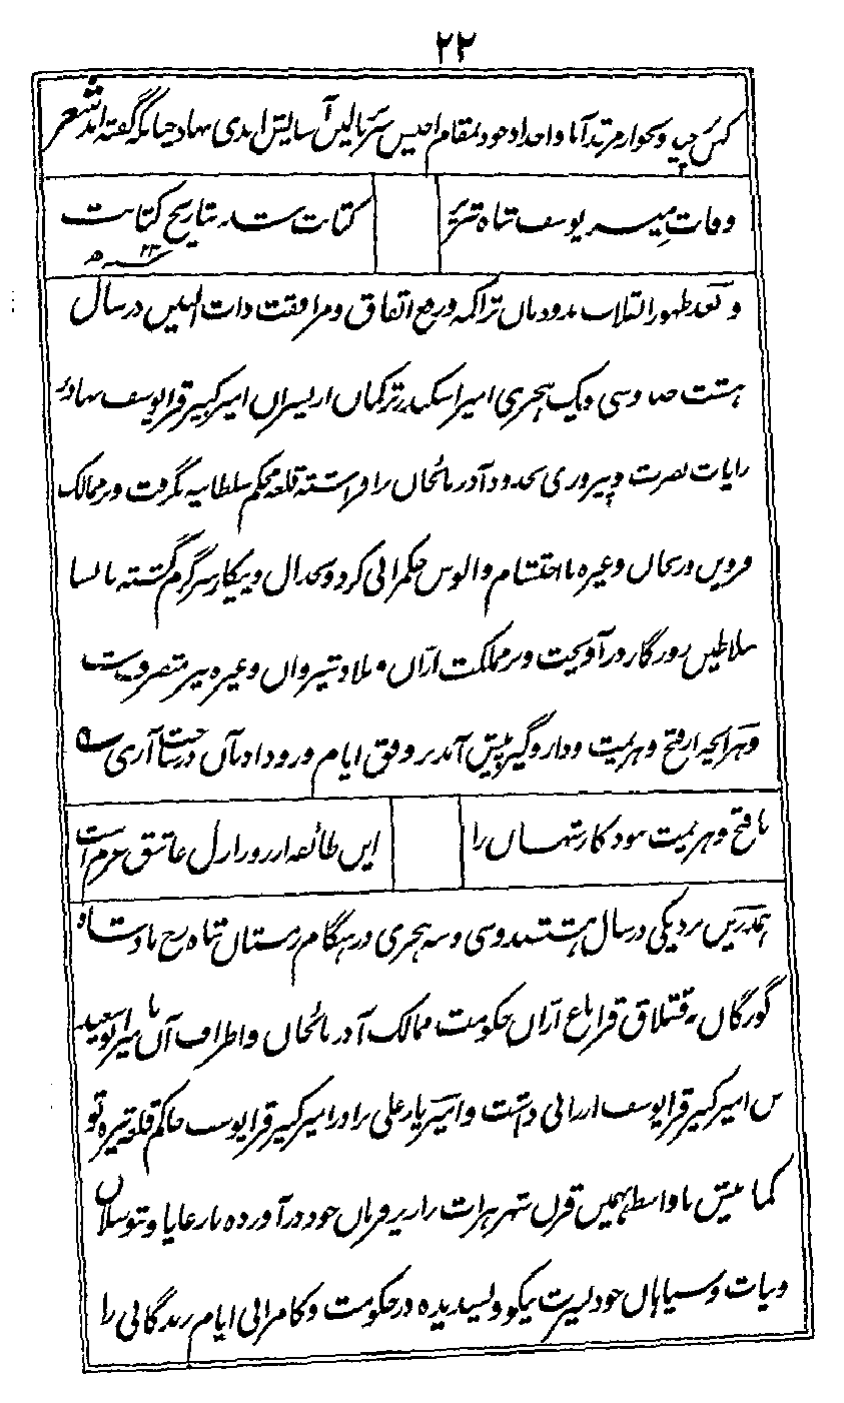 ۲۲
کس چپ و بجوار مرتد آبا و اجداد خود بمقام احیس سر بالین آسایش ابدی نهاد چنانکه گفته اند شعر
وفات میر یوسف شاه تبریز کتابت شد بتاریخ کتابت
۲۳
و بعد ظهور انقلاب بدودمان تراکمه و رفع اتفاق و مرافقت ذات البین در سال
هشت صد و سی و یک هجری امیر اسکندر ترکمان از پسران امیر کبیر قرا یوسف بهادر
رایات نصرت و پیروزی بحدود آذربائجان را فراشته قلعه محکم سلطانیه بگرفت و بر ممالک
قزوین و زنجان و غیره با احتشام و الوس حکمرانی کرد و بجدال و پیکار سرگرم گشته با بسا
سلاطین روزگار در آویخت و بر مملکت ارّان و بلاد شیروان و غیره نیز متصرف
و هر آنچه از فتح و هزیمت و دار و گیر پیش آمد بر وفق ایام ورود ادبآن در ساخت آری
با فتح و هزیمت نبود کار شهان را این طائفه از روز ازل عاشق عزم است
همدرین نزدیکی در سال هشتصد و سی و سه هجری در هنگام زمستان شاه رخ بادشاه
گورگان به قشلاق قراباغ ارّان حکومت ممالک آذربائجان و اطراف آن با میر ابو سعید
بن امیر کبیر قرا یوسف ارزانی داشت و امیر یار علی برادر امیر کبیر قرا یوسف حاکم قلعه تیره تو
کما بیش با واسط همین قرن شهر هرات را زیر فرمان خود در آورده با رعایا و متوسلان
و سپاهان خود بسیرت نیکو و پسندیده در حکومت و کامرانی ایام زندگانی را